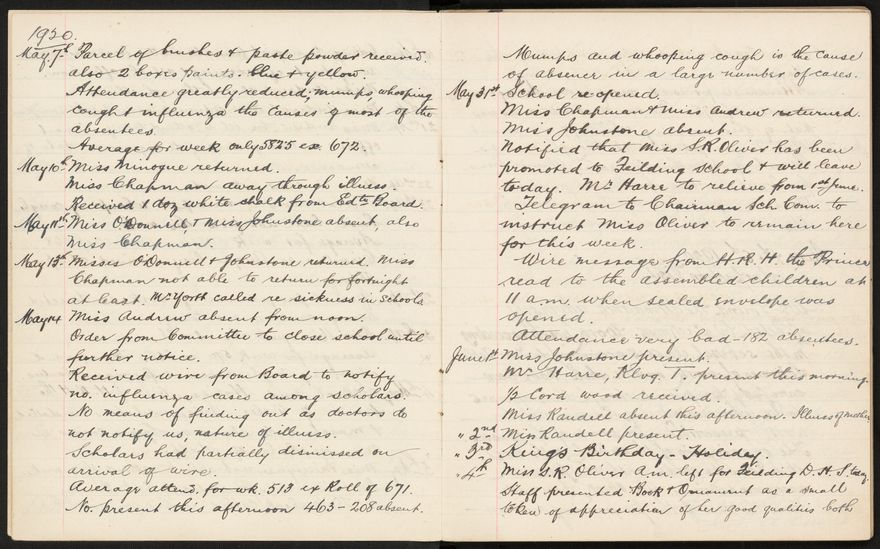 1920.
May 7th Parcel of brushes & paste powder received.
also 2 boxes paints. blue & yellow.
Attendance greatly reduced; mumps, whooping
cought influenza the causes of most of the
absentees.
Average for week only 582.5 ex 672.
May 10th Miss Minogue returned.
Miss Chapman away through illness.
Received 1 doz white chalk from Edtn Board.
May 11th Miss O'Donnell & Miss Johnstone absent, also
Miss Chapman.
May 13th Misses O'Donnell & Johnstone returned. Miss
Chapman not able to return for fortnight
at least. Mr Yorth called re sickness in Schools
May 14 Miss Andrew absent from noon.
Order from Committee to close school until
further notice.
Received wire from Board to notify
no. influenza cases among scholars.
No means of finding out as doctors do
not notify us, nature of illness.
Scholars had partially dismissed on
arrival of wire.
Average attend. for wk. 513 ex Roll of 671.
No. present this afternoon 463 - 208 absent.
Mumps and whooping cough is the cause
of absence in a large number of cases.
May 31st School re-opened.
Miss Chapman & Miss Andrew returned.
Miss Johnstone absent.
Notified that Miss S.R. Oliver has been
promoted to Feilding School & will leave
to-day. Mr Harre to relieve from 1st June.
Telegram to Chairman Sch. Com. to
instruct Miss Oliver to remain here
for this week.
Wire message from H.R.H. the Prince
read to the assembled children at
11 a.m. when sealed envelope was
opened.
Attendance very bad - 182 absentees.
June 1st Miss Johnstone present.
Mr Harre, Rlvg. T. present this morning.
1/2 Cord wood received.
Miss Randell absent this afternoon. Illness of mother
" 2nd Miss Randell present.
" 3rd King's Birthday - Holiday.
" 4th Miss S.R. Oliver A.m. left for Feilding D.H.S. today.
Staff presented Book & Ornament as a small
token of appreciation of her good qualities both